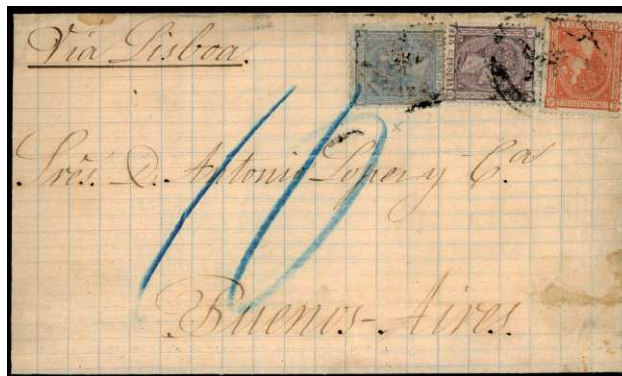 Via Lisboa.
10
Sres. D. Antonio Lopez y Cª
Buenos-Aires.